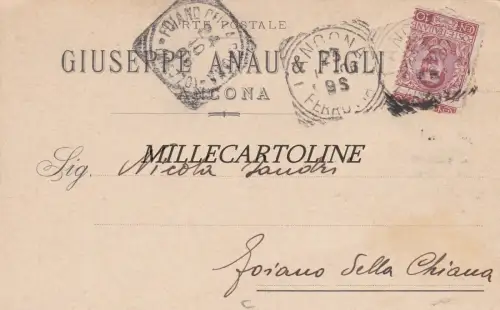 CARTE POSTALE
GIUSEPPE ANAU & FIGLI
ANCONA
FOIANO DELLA
ANCONA
FERROVIA
95
MILLECARTOLINE
Sig. Nicola Sandri
Foiano della Chiana